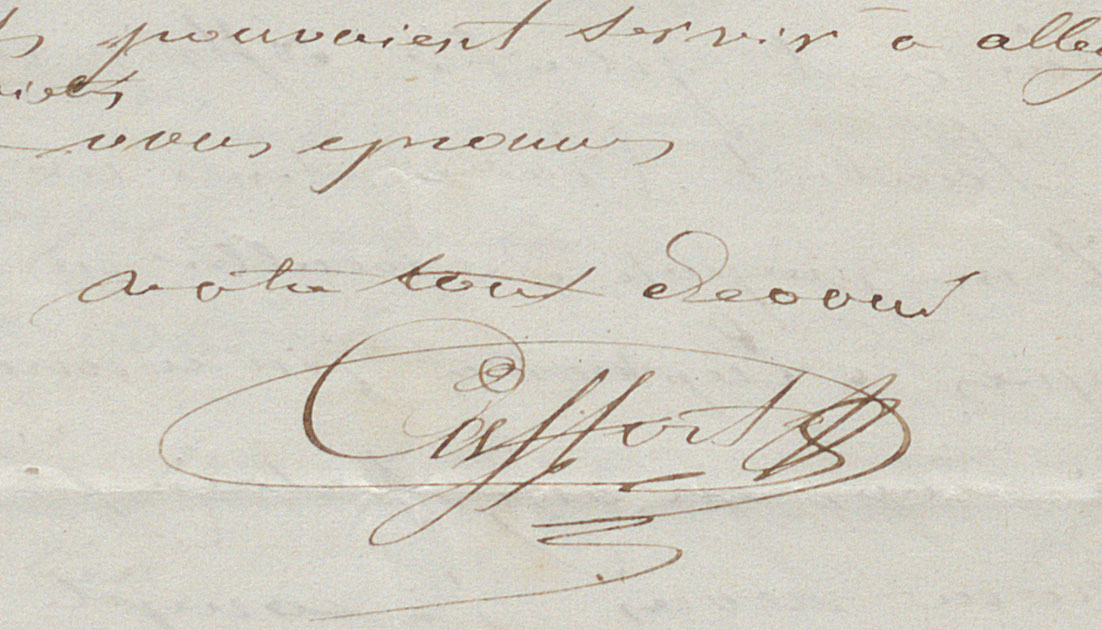 pouvaient servir à alleg
vous eprouvez
votre tout Devoué
Caffort